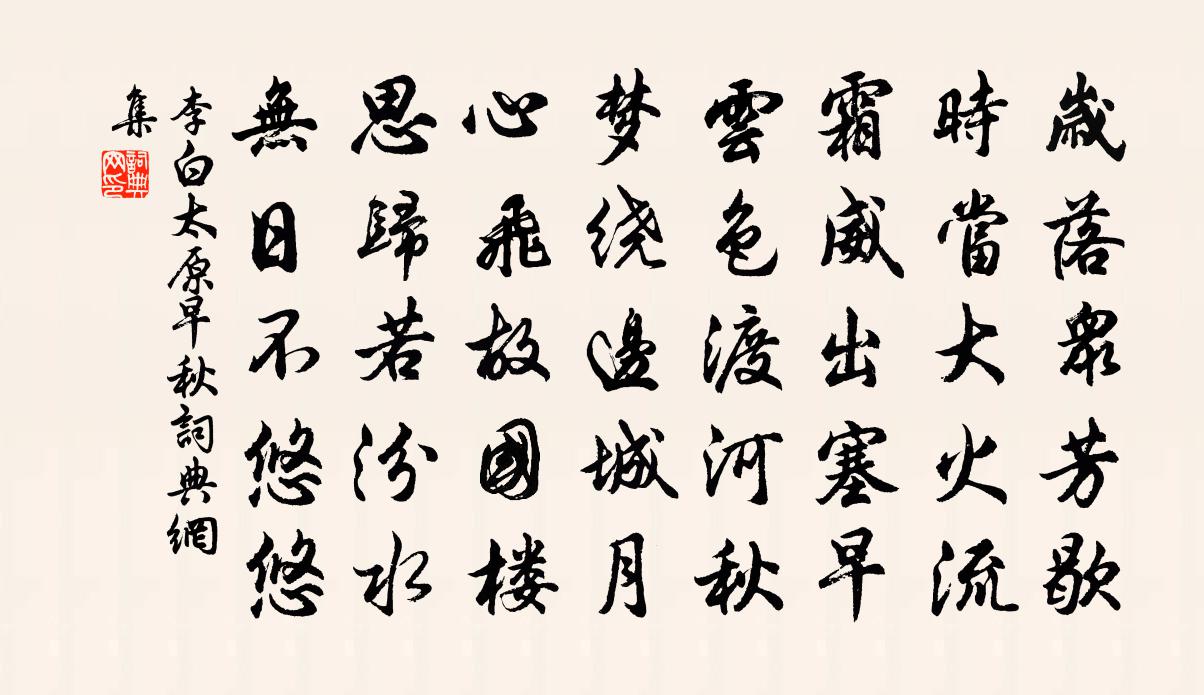 歲落衆芳歇
時當大火流
霜威出塞早
雲色渡河秋
梦绕邊城月
心飛故國楼
思歸若汾水
無日不悠悠
李白太原早秋詞典網
集
詞典
网印